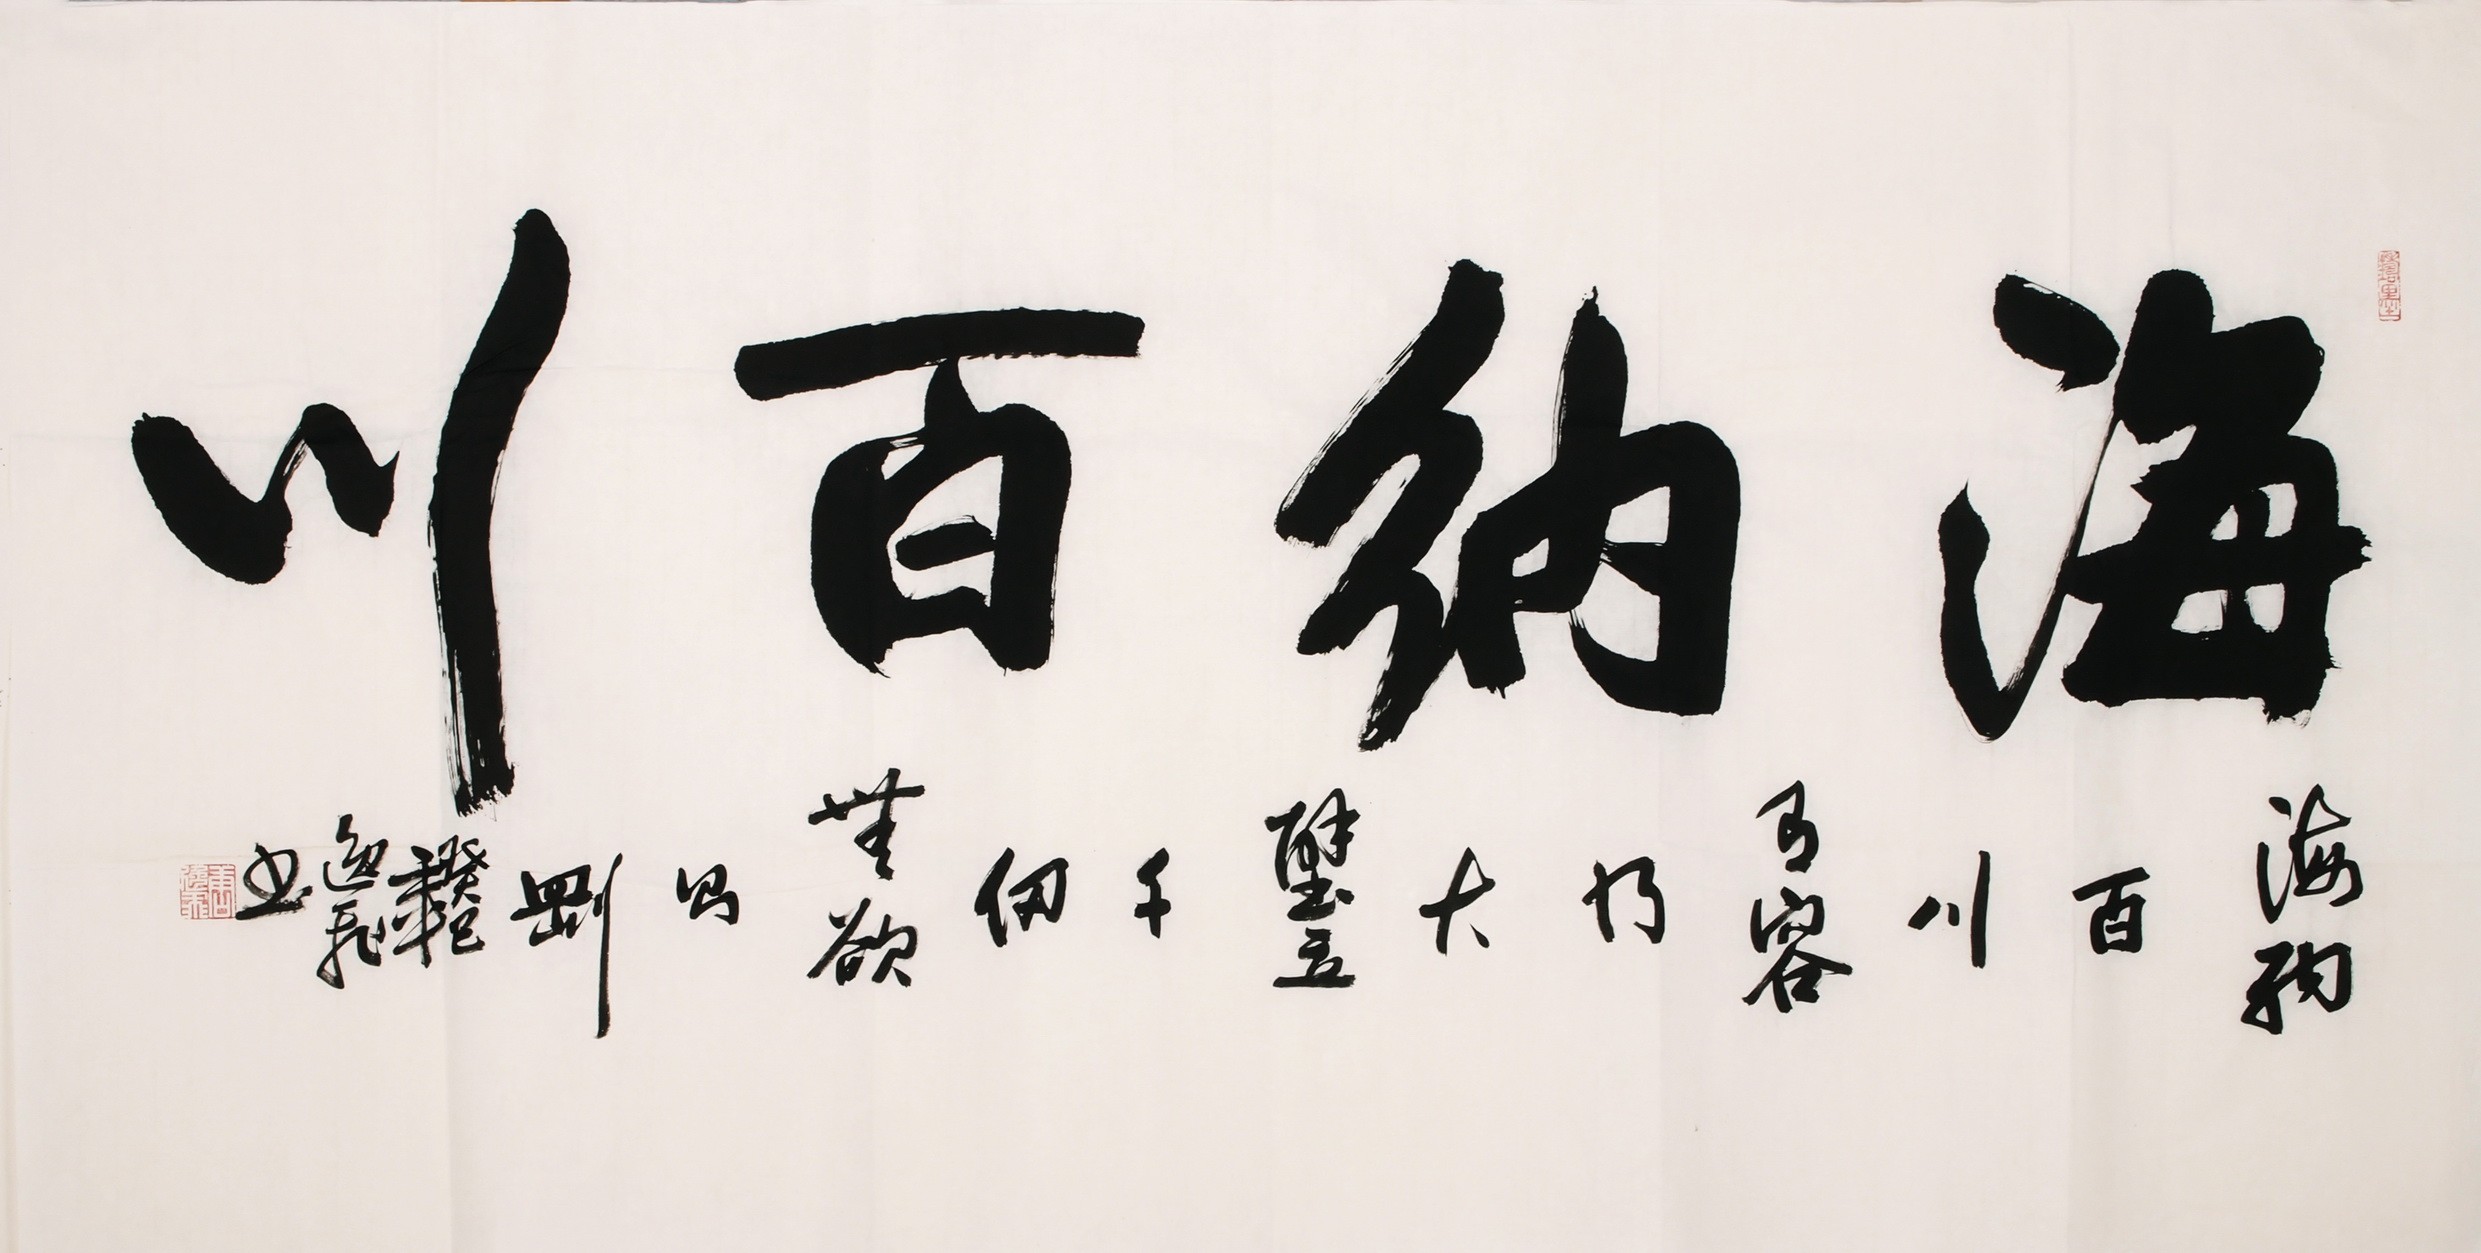 海納百川
海納百川有容乃大壁立千仞無欲則剛
癸巳年
逸飛
书